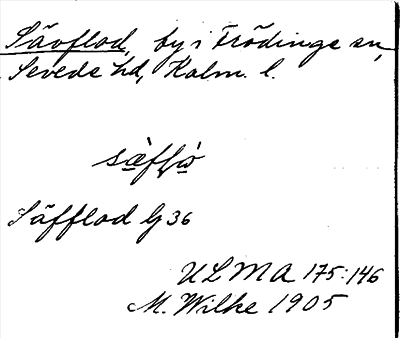 Sävflod, by i Frödinge sn,
Sevede hd, Kalm. l.
Säfflod Gj 36
ULMA 175:146
M. Wilke 1905